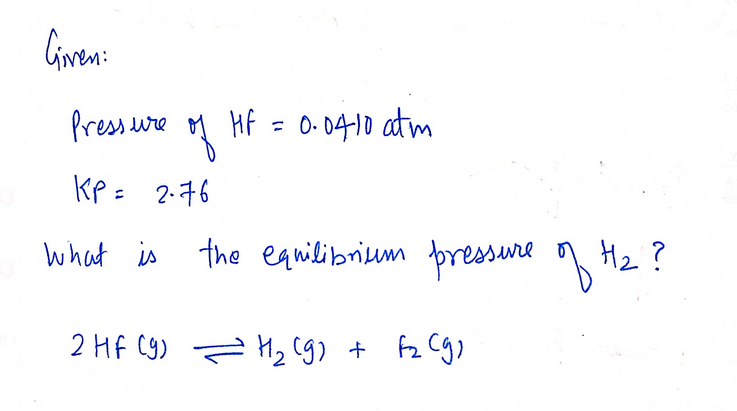 Given:
Pressure of HF = 0.0410 atm
KP = 2.76
What is the equilibrium pressure of H₂ ?
2 HF (g) ⇌ H₂ (g) + F₂ (g)